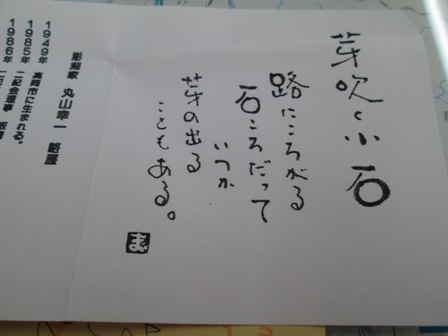 芽吹く小石
路にころがる
石ころだって
いつか
芽の出る
こともある。
彫刻家 丸山幸一 略歴
1949年 高岡市に生まれる。
1985年 二紀会
1986年